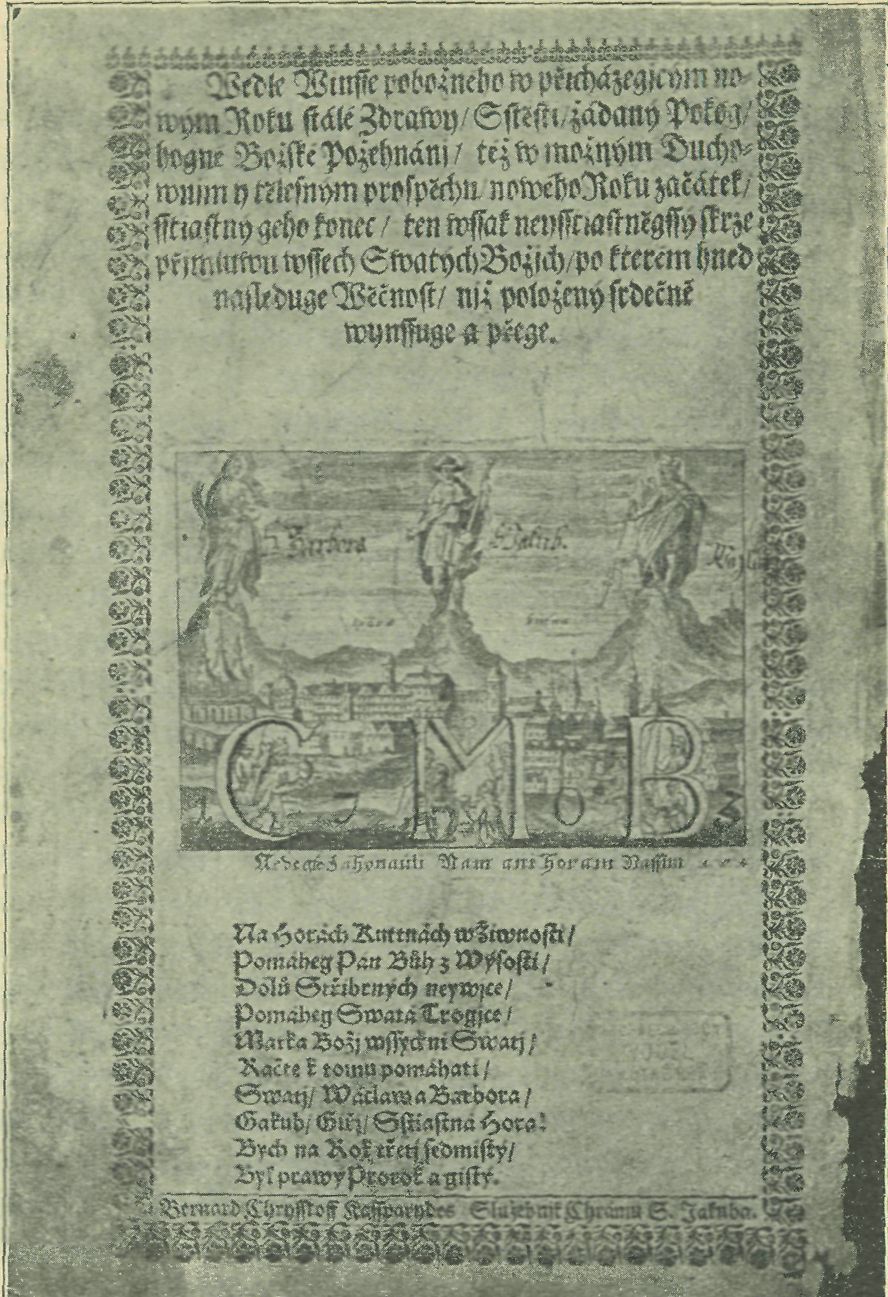 Wedle Winsse pobožneho w přicházegicým no-
wým Roku stálé Zdrawy/ Sstěsti/ žádaný Pokog/
hogné Božské Požehnánj/ též w možným Ducho-
wnim y tělesným prospěchu noweho Roku začátek/
sstiastny geho konec/ ten wssak neysstiastněgssy skrze
přjmluwu wssech Swatých Božjch/ po kterém hned
nasleduge Wěčnost/ njž položený srdečně
wynssuge a přege.
Barbora
Jakub.
C M B
1 7 0 2
Zahynauti Nam ani Horam Nassim
Na Horách Kuttnách w Žiwnosti/
Pomáheg Pan Bůh z Wýsosti/
Dolů Střibrných neywjce/
Pomáheg Swatá Trogjce/
Matka Božj wssyckni Swatj/
Račte k tomu pomáhati/
Swatj/ Wáclaw a Barbora/
Gakub/ Giřj/ Sstiastná Hora!
Bych na Rok třetj sedmistý/
Byl prawý Prorok a gistý.
Bernard Chrysstoff Kassparydes Služebnik Chrámu S. Jakuba.